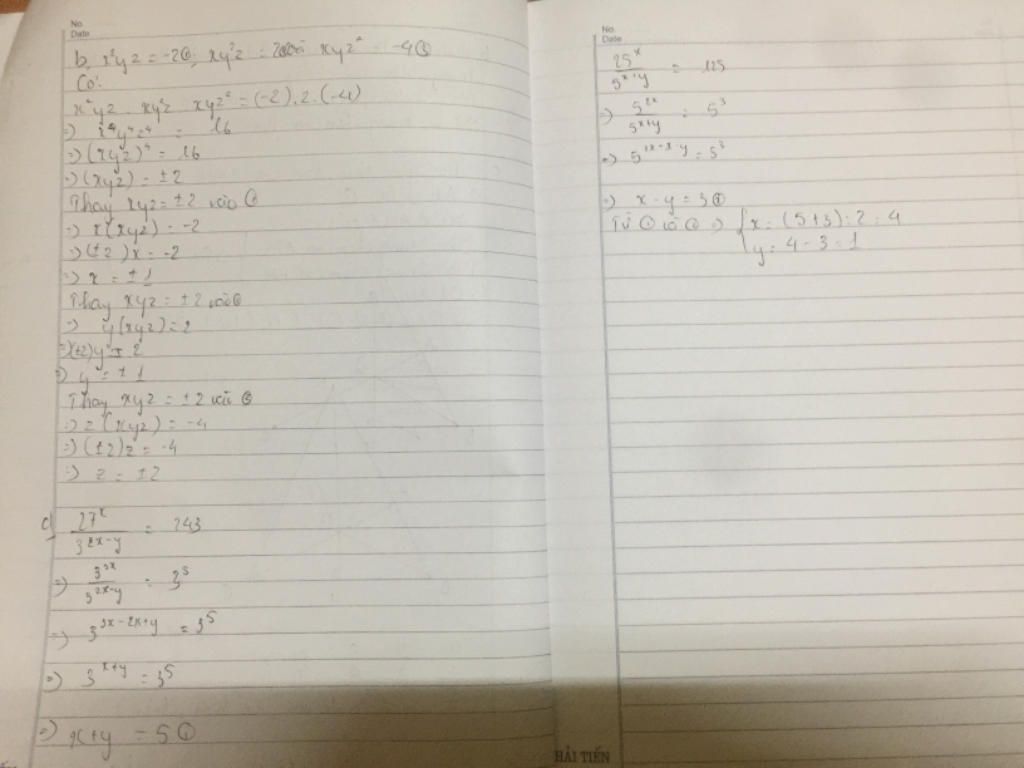 No.
Date
b, x²yz = -2①; xy²z = 2② và xyz² = -4③
Có:
x²yz . xy²z . xyz² = (-2).2.(-4)
=) x⁴y⁴z⁴ = 16
=) (xyz)⁴ = 16
=) (xyz) = ±2
Thay xyz = ±2 vào ①
=) x(xyz) = -2
=) (±2)x = -2
=) x = ±1
Thay xyz = ±2 vào ②
=) y(xyz) = 2
=) (±2)y = 2
=) y = ±1
Thay xyz = ±2 vào ③
=) z(xyz) = -4
=) (±2)z = -4
=) z = ±2
c) 27ˣ / 3²ˣ⁻ʸ = 243
=) 3³ˣ / 3²ˣ⁻ʸ = 3⁵
=) 3³ˣ⁻²ˣ⁺ʸ = 3⁵
=) 3ˣ⁺ʸ = 3⁵
=) x+y = 5①
No.
Date
25ˣ / 5ˣ⁺ʸ = 125
=) 5²ˣ / 5ˣ⁺ʸ = 5³
=) 5²ˣ⁻ˣ⁻ʸ = 5³
=) x-y = 3②
Từ ① và ② =) { x = (5+3):2 = 4
y = 4-3 = 1
HẢI TIẾN